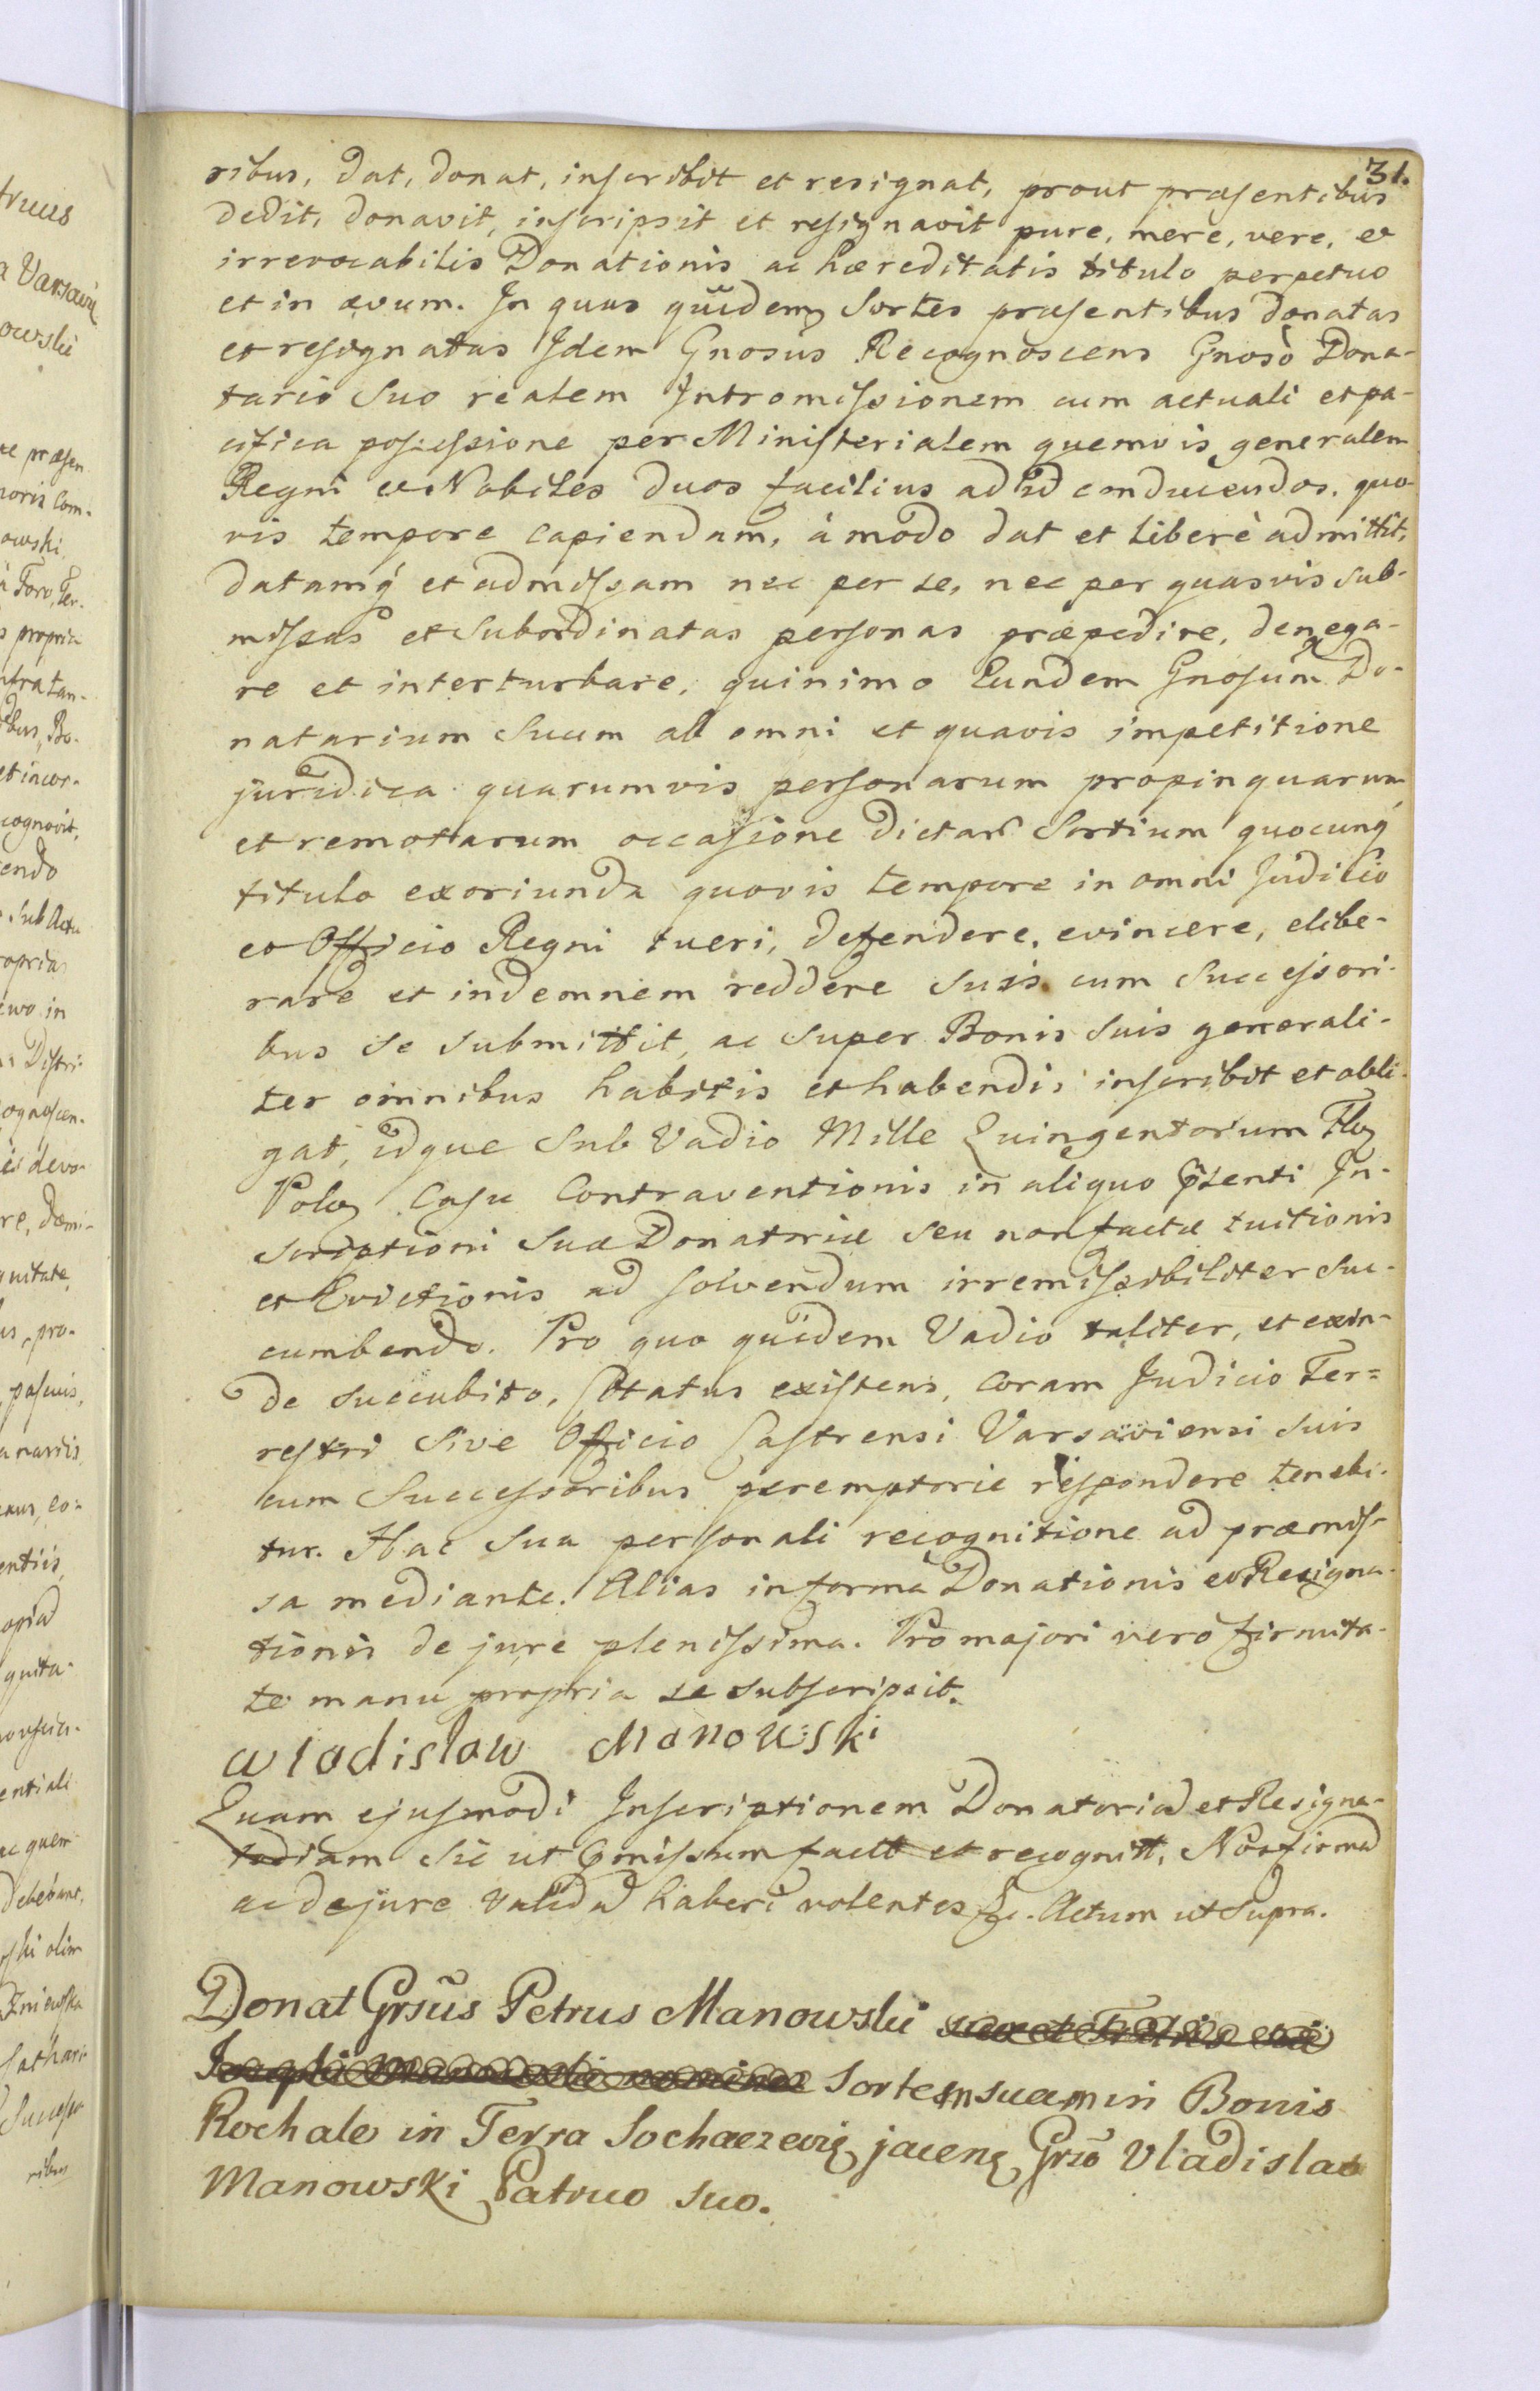 31.
ribus, dat, donat, inscribit et resignat, prout præsentibus
dedit, donavit, inscripsit et resignavit pure, mere, vere, et
irrevocabilis Donationis ac hæreditatis titulo perpetuo
et in ævum. In quas quidem Sortes præsentibus donatas
et resignatas Idem Gnosus Recognoscens Gnoso Dona-
tario Suo realem Intromissionem cum actuali et pa-
cifica possessione per Ministerialem quemvis generalem
Regni et Nobiles duos facilius ad id conducendos, quo-
vis tempore capiendam, à modo dat et liberè admittit,
datamq́ et admissam nec per se, nec per quasvis sub-
missas et subordinatas personas præpedire, denega-
re et interturbare, quinimo Eundem Gnosum Do-
natarium Suum ab omni et quavis impetitione
juridica quarumvis personarum propinquarum
et remotarum occasione dictar Sortium quocunq́
titulo exoriunda quovis tempore in omni Judicio
et Officio Regni tueri, defendere, evincere, elibe-
rare et indemnem reddere suis cum Successori-
bus se submittit, ac super Bonis suis generali-
ter omnibus habitis et habendis inscribit et obli-
gat, idque Sub Vadio Mille Quingentorum Flo
Polo Casu Contraventionis in aliquo p̃senti In-
scriptioni suæ Donatoriæ seu non factæ tuitionis
et Evictionis ad solvendum irremissibiliter suc-
cumbendo. Pro quo quidem Vadio taliter, et exin-
de succubito, Citatus existens, coram Judicio Ter=
restri sive Officio Castrensi Varsaviensi suis
cum Successoribus peremptorie respondere tenebi-
tur. Hac sua personali recognitione ad præmis-
sa mediante. Alias in forma Donationis et Resigna-
tionis de jure plenissima. Pro majori vero firmita-
te manu propria se subscripsit.
Wladislaw Manowski
Quam ejusmodi Inscriptionem Donatoria et Resigna-
toriam sic ut p̃missum facit et recognitt, Nos firma
ac de jure valida haberi volentes &c. Actum ut supra.
Donat Grsũs Petrus Manowski
Sortem suam in Bonis
Rochale in Terra Sochaczevie jacene Grso Vladislao
Manowski Patruo suo.